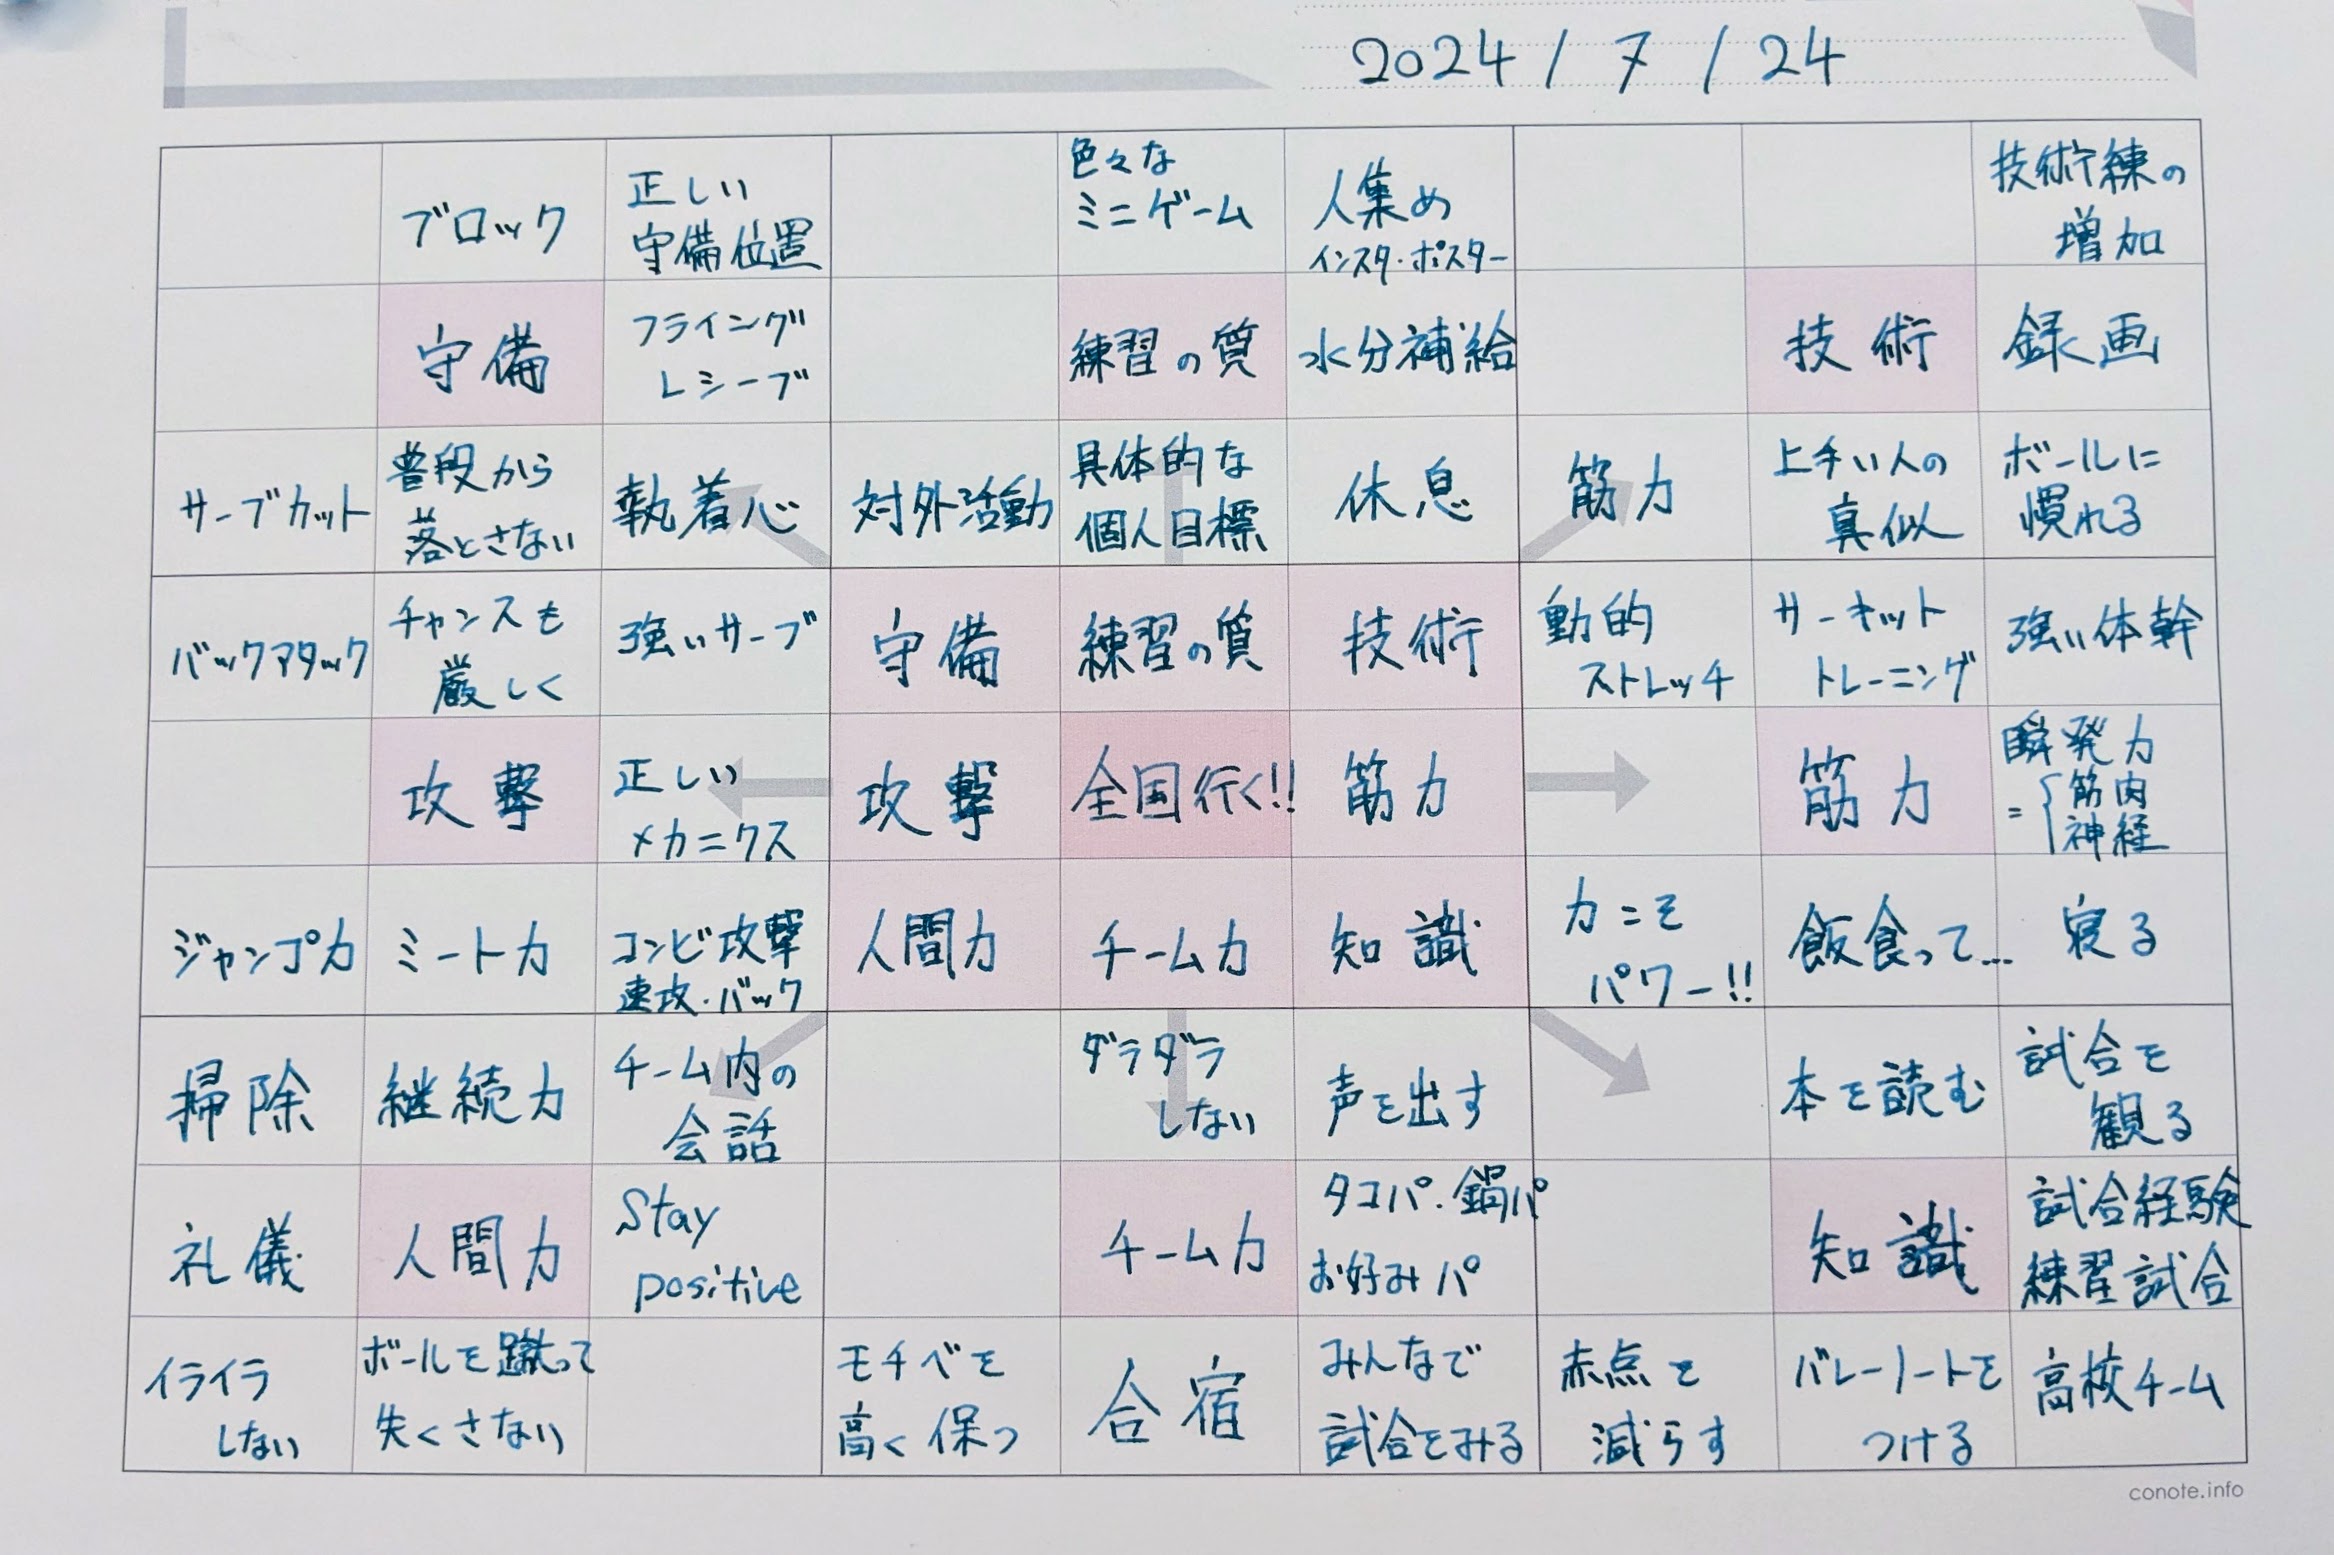 2024 / 7 / 24
ブロック
正しい
守備位置
色々な
ミニゲーム
人集め
インスタ・ポスター
技術練の
増加
守備
フライング
レシーブ
練習の質
水分補給
技術
録画
サーブカット
普段から
落とさない
執着心
対外活動
具体的な
個人目標
休息
筋力
上手い人の
真似
ボールに
慣れる
バックアタック
チャンスも
厳しく
強いサーブ
守備
練習の質
技術
動的
ストレッチ
サーキット
トレーニング
強い体幹
攻撃
正しい
メカニクス
攻撃
全国行く!!
筋力
筋力
瞬発力
={筋肉
神経
ジャンプ力
ミート力
コンビ攻撃
速攻・バック
人間力
チーム力
知識
力こそ
パワー!!
飯食って...
寝る
掃除
継続力
チーム内の
会話
ダラダラ
しない
声を出す
本を読む
試合を
観る
礼儀
人間力
Stay
positive
チーム力
タコパ・鍋パ
お好みパ
知識
試合経験
練習試合
イライラ
しない
ボールを蹴って
失くさない
モチベを
高く保つ
合宿
みんなで
試合をみる
赤点を
減らす
バレーノートを
つける
高校チーム
conote.info